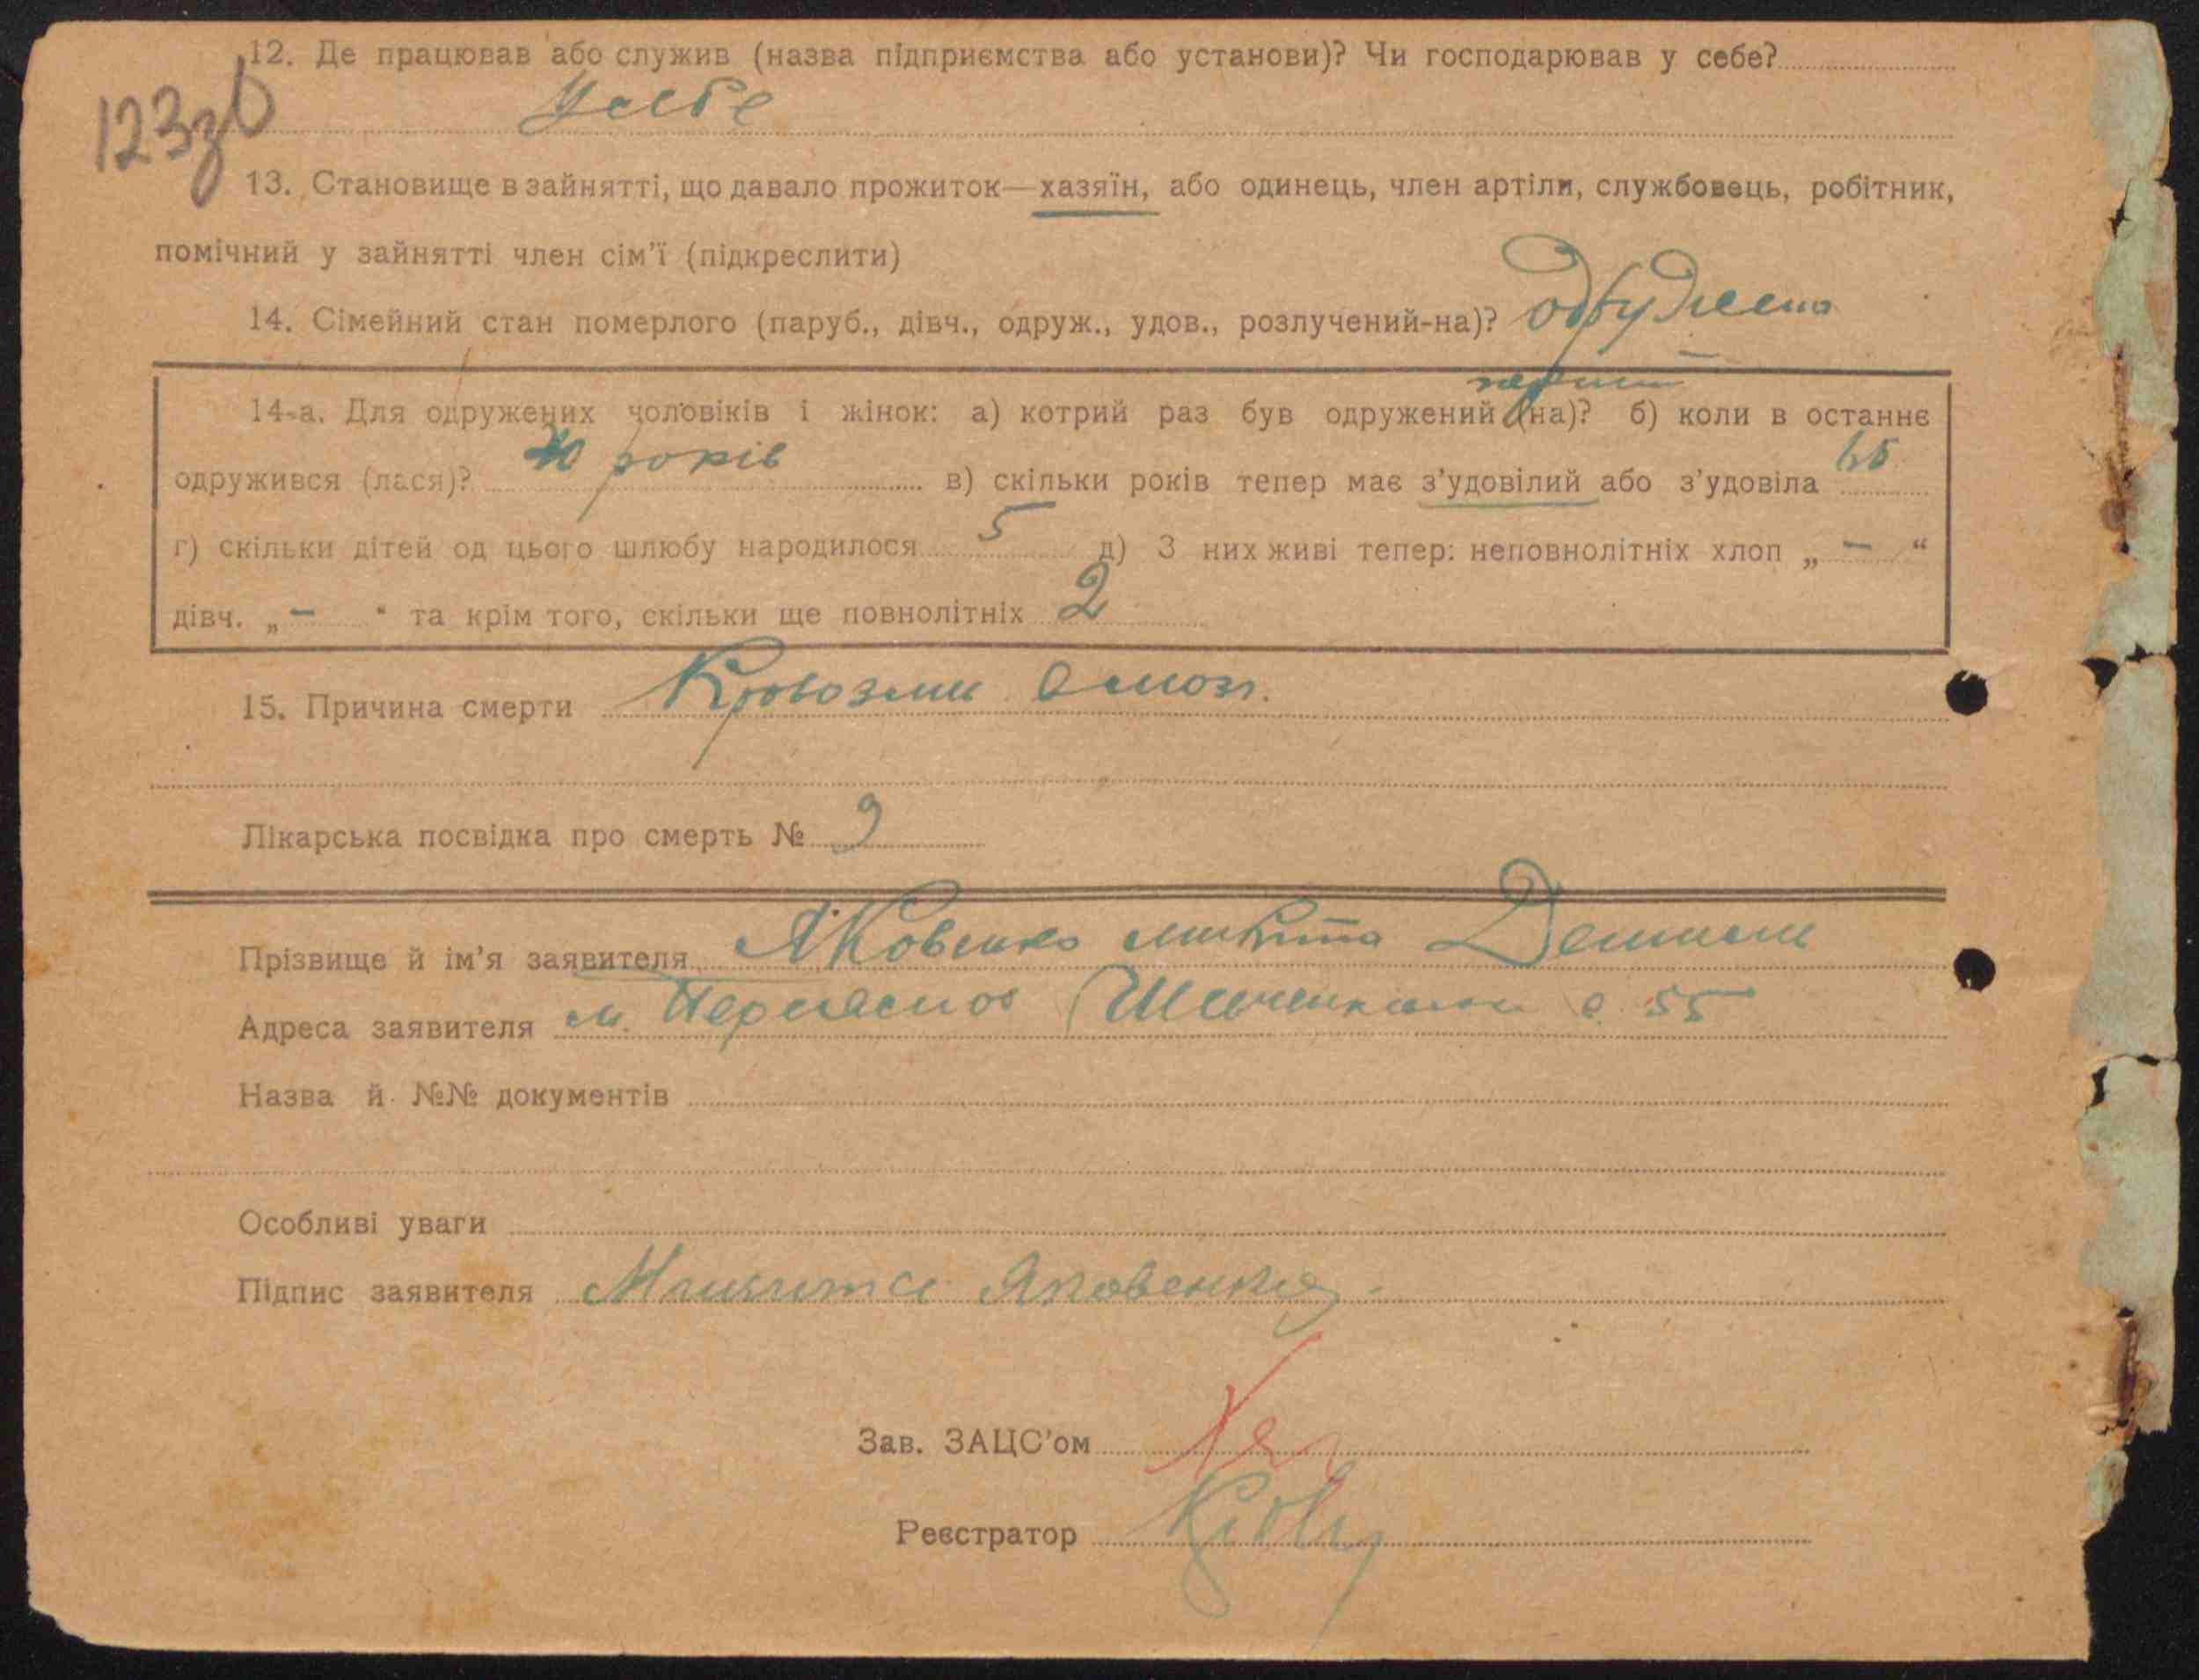 12. Де працював або служив (назва підприємства або установи)? Чи господарював у себе?
123зв
У себе
13. Становище в зайнятті, що давало прожиток—хазяїн, або одинець, член артіли, службовець, робітник,
помічний у зайнятті член сім'ї (підкреслити)
14. Сімейний стан померлого (паруб., дівч., одруж., удов., розлучений-на)? одружена
перший
14-а. Для одружених чоловіків і жінок: а) котрий раз був одружений (на)? б) коли в останнє
одружився (лася)? 40 років в) скільки років тепер має з'удовілий або з'удовіла 65
г) скільки дітей од цього шлюбу народилося 5 д) З них живі тепер: неповнолітніх хлоп „ — “
дівч. „ — “ та крім того, скільки ще повнолітніх 2
15. Причина смерти
Лікарська посвідка про смерть № 9
Прізвище й ім'я заявителя Яковенко Микита
Адреса заявителя м. Переяслов 55
Назва й №№ документів
Особливі уваги
Підпис заявителя Микита Яковенко
Зав. ЗАЦС'ом
Реєстратор